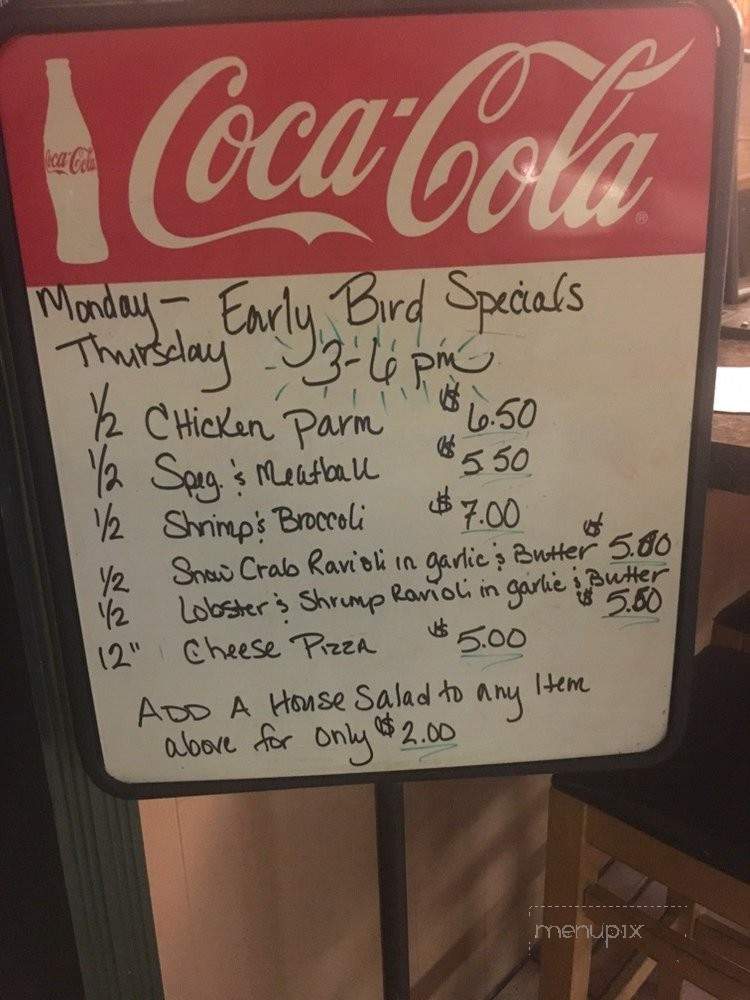 Coca-Cola
Coca-Cola ®
Monday - Early Bird Specials
Thursday 3-6 pm
1/2 CHicken Parm $6.50
1/2 Spag. & Meatball $5.50
1/2 Shrimp & Broccoli $7.00
1/2 Snow Crab Ravioli in garlic & Butter $
1/2 Lobster & Shrimp Ravioli in garlic & Butter $
12" Cheese Pizza $5.00
ADD A House Salad to any Item
above for only $2.00
menupix